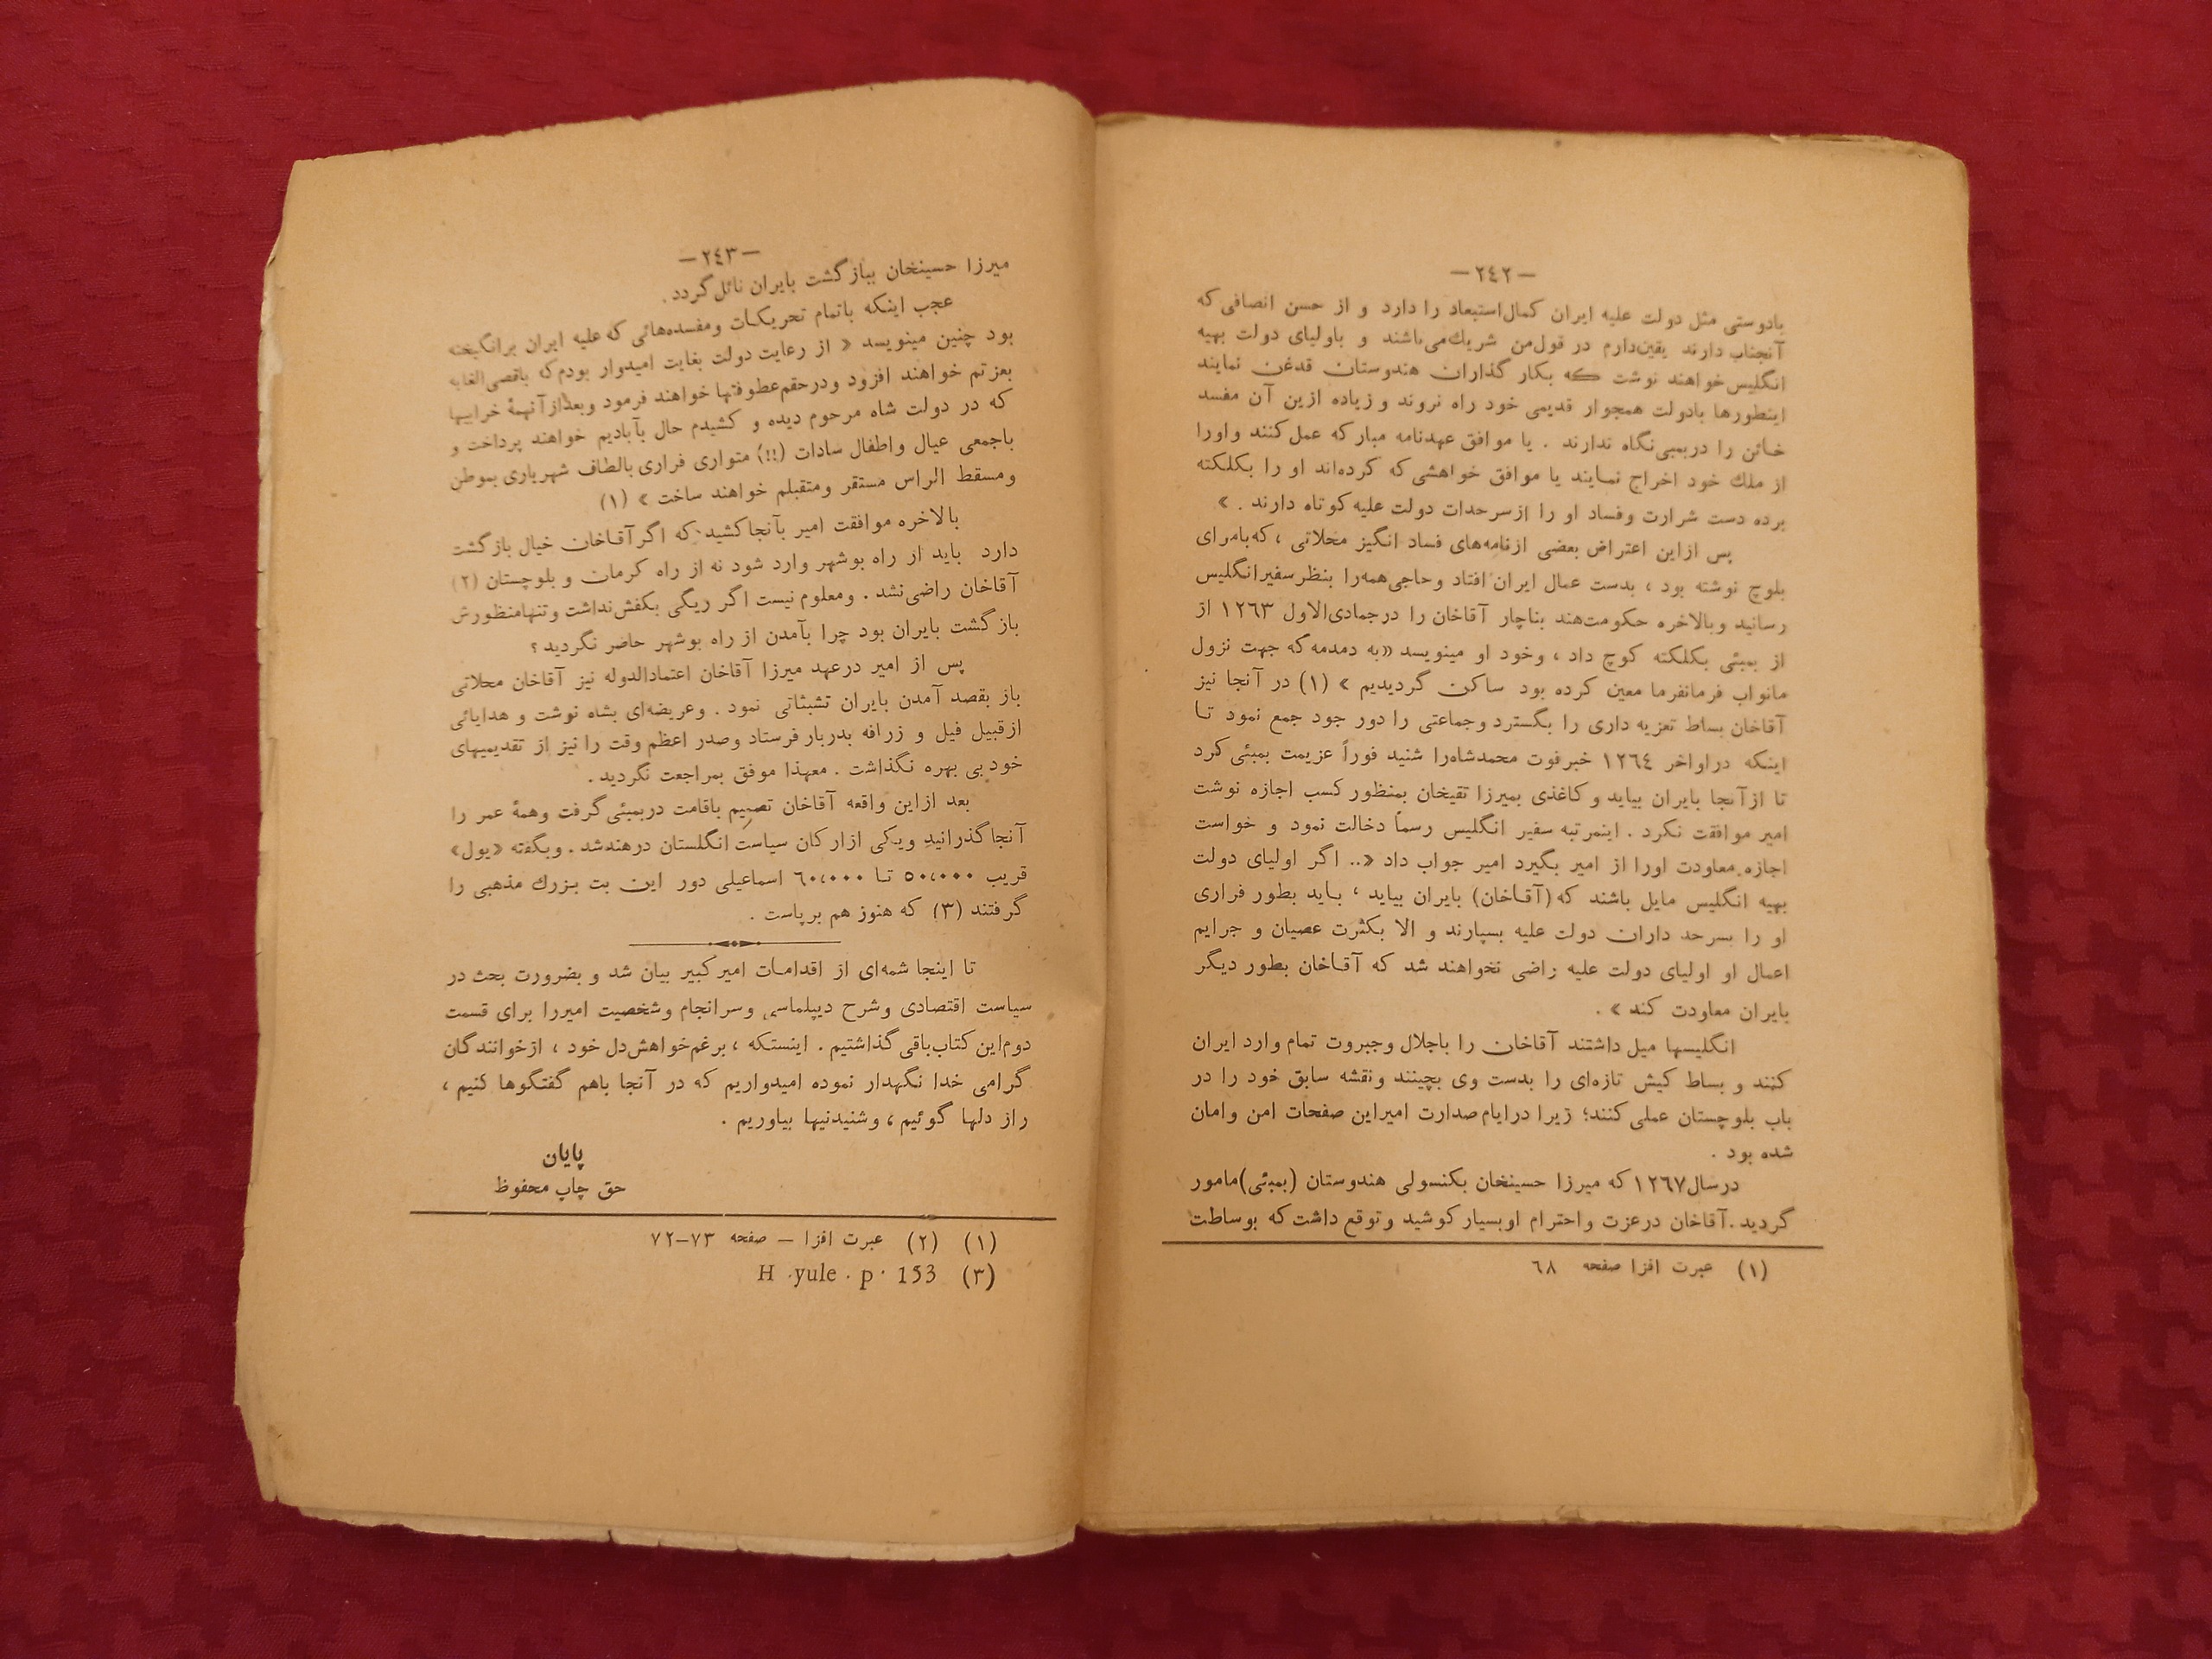 —٢٤٢—
بادوستی مثل دولت علیه ایران کمال‌استبعاد را دارد و از حسن انصافی‌که
آنجناب دارند یقین‌دارم در قول‌من شریك‌می‌باشند و باولیای دولت بهیه
انگلیس‌خواهند نوشت که بکار گذاران هندوستان قدغن نمایند
اینطورها بادولت همجوار قدیمی خود راه نروند و زیاده ازین آن مفسد
خائن را دربمبی‌نگاه ندارند . یا موافق عهدنامه مبارکه عمل‌کنند واورا
از ملك خود اخراج نمایند یا موافق خواهشی‌که کرده‌اند او را بکلکته
برده دست شرارت وفساد او را ازسرحدات دولت علیه‌کوتاه دارند . »
پس ازاین اعتراض بعضی ازنامه‌های فساد انگیز محلاتی ، که‌بامرای
بلوچ نوشته بود ، بدست عمال ایران افتاد وحاجی‌همه‌را بنظر سفیرانگلیس
رسانید وبالاخره حکومت‌هند بناچار آقاخان را درجمادی‌الاول ١٢٦٣ از
از بمبئی بکلکته کوچ داد ، وخود او مینویسد «به دمدمه‌که جهت نزول
مانواب فرمانفرما معین کرده بود ساکن گردیدیم » (١) در آنجا نیز
آقاخان بساط تعزیه داری را بگسترد وجماعتی را دور جود جمع نمود تـا
اینکه دراواخر ١٢٦٤ خبرفوت محمدشاه‌را شنید فوراً عزیمت بمبئی‌کرد
تا ازآنجا بایران بیاید و کاغذی بمیرزا تقیخان بمنظور کسب اجازه نوشت
امیر موافقت نکرد . اینمرتبه سفیر انگلیس رسماً دخالت نمود و خواست
اجازه معاودت اورا از امیر بگیرد امیر جواب داد «.. اگر اولیای دولت
بهیه انگلیس مایل باشند که (آقـاخان) بایران بیاید ، بـاید بطور فراری
او را بسرحد داران دولت علیه بسپارند و الا بکثرت عصیان و جرایم
اعمال او اولیای دولت علیه راضی نخواهند شد که آقـاخان بطور دیگر
بایران معاودت کند » .
انگلیسها میل داشتند آقاخان را باجلال وجبروت تمام وارد ایران
کنند و بساط کیش تازه‌ای را بدست وی بچینند ونقشه سابق خود را در
باب بلوچستان عملی‌کنند؛ زیرا درایام‌صدارت امیراین صفحات امن وامان
شده بود .
درسال١٢٦٧ که میرزا حسینخان بکنسولی هندوستان (بمبئی)مامور
گردید.آقاخان درعزت واحترام اوبسیار کوشید وتوقع داشت‌که بوساطت
(١) عبرت افزا صفحه ٦٨
—٢٤٣—
میرزا حسینخان ببازگشت بایران نائل‌گردد.
عجب اینکه باتمام تحریکـات ومفسده‌هائی که علیه ایران برانگیخته
بود چنین مینویسد « از رعایت دولت بغایت امیدوار بودم‌که باقصی‌الغایه
بعزتم خواهند افزود ودرحقم‌عطوفتها خواهند فرمود وبعدازآنهمهٔ خرابیها
که در دولت شاه مرحوم دیده و کشیدم حال بآبادیم خواهند پرداخت و
باجمعی عیال واطفال سادات (!!) متواری فراری بالطاف شهریاری بموطن
ومسقط الراس مستقر ومتقبلم خواهند ساخت » (١)
بالاخره موافقت امیر بآنجاکشید که اگرآقـاخان خیال بازگشت
دارد باید از راه بوشهر وارد شود نه از راه کرمان و بلوچستان (٢)
آقاخان راضی‌نشد . ومعلوم نیست اگر ریگی بکفش‌نداشت وتنهامنظورش
بازگشت بایران بود چرا بآمدن از راه بوشهر حاضر نگردید ؟
پس از امیر درعهد میرزا آقاخان اعتمادالدوله نیز آقاخان محلاتی
باز بقصد آمدن بایران تشبثاتی نمود . وعریضه‌ای بشاه نوشت و هدایائی
ازقبیل فیل و زرافه بدربار فرستاد وصدر اعظم وقت را نیز از تقدیمیهای
خود بی بهره نگذاشت . معهذا موفق بمراجعت نگردید .
بعد ازاین واقعه آقاخان تصمیم باقامت دربمبئی‌گرفت وهمهٔ عمر را
آنجاگذرانید ویکی ازارکان سیاست انگلستان درهندشد . وبگفته «یول»
قریب ٥٠،٠٠٠ تـا ٦٠،٠٠٠ اسماعیلی دور این بت بزرك مذهبی را
گرفتند (٣) که هنوز هم برپاست .
تا اینجا شمه‌ای از اقدامـات امیرکبیر بیان شد و بضرورت بحث در
سیاست اقتصادی وشرح دیپلماسی وسرانجام وشخصیت امیررا برای قسمت
دوم‌این‌کتاب‌باقی‌گذاشتیم . اینستکه ، برغم‌خواهش‌دل خود ، ازخوانندگان
گرامی خدا نگهدار نموده امیدواریم که در آنجا باهم گفتگوها کنیم ،
راز دلها گوئیم ، وشنیدنیها بیاوریم .
پایان
حق چاپ محفوظ
(١) (٢) عبرت افزا — صفحه ٧٣—٧٢
(٣) H .yule . p . 153